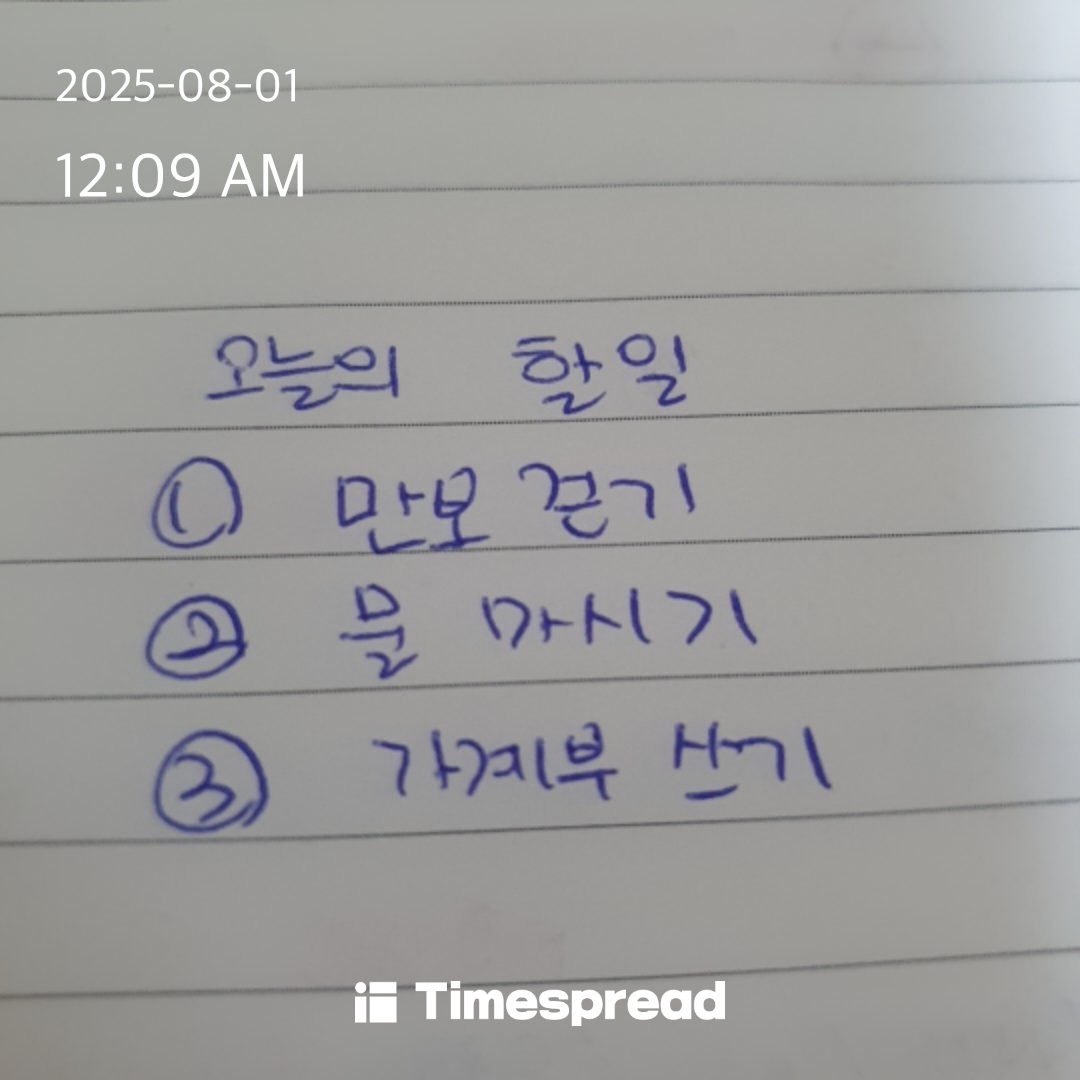 2025-08-01
12:09 AM
오늘의 할일
① 만보 걷기
② 물 마시기
③ 가계부 쓰기
Timespread